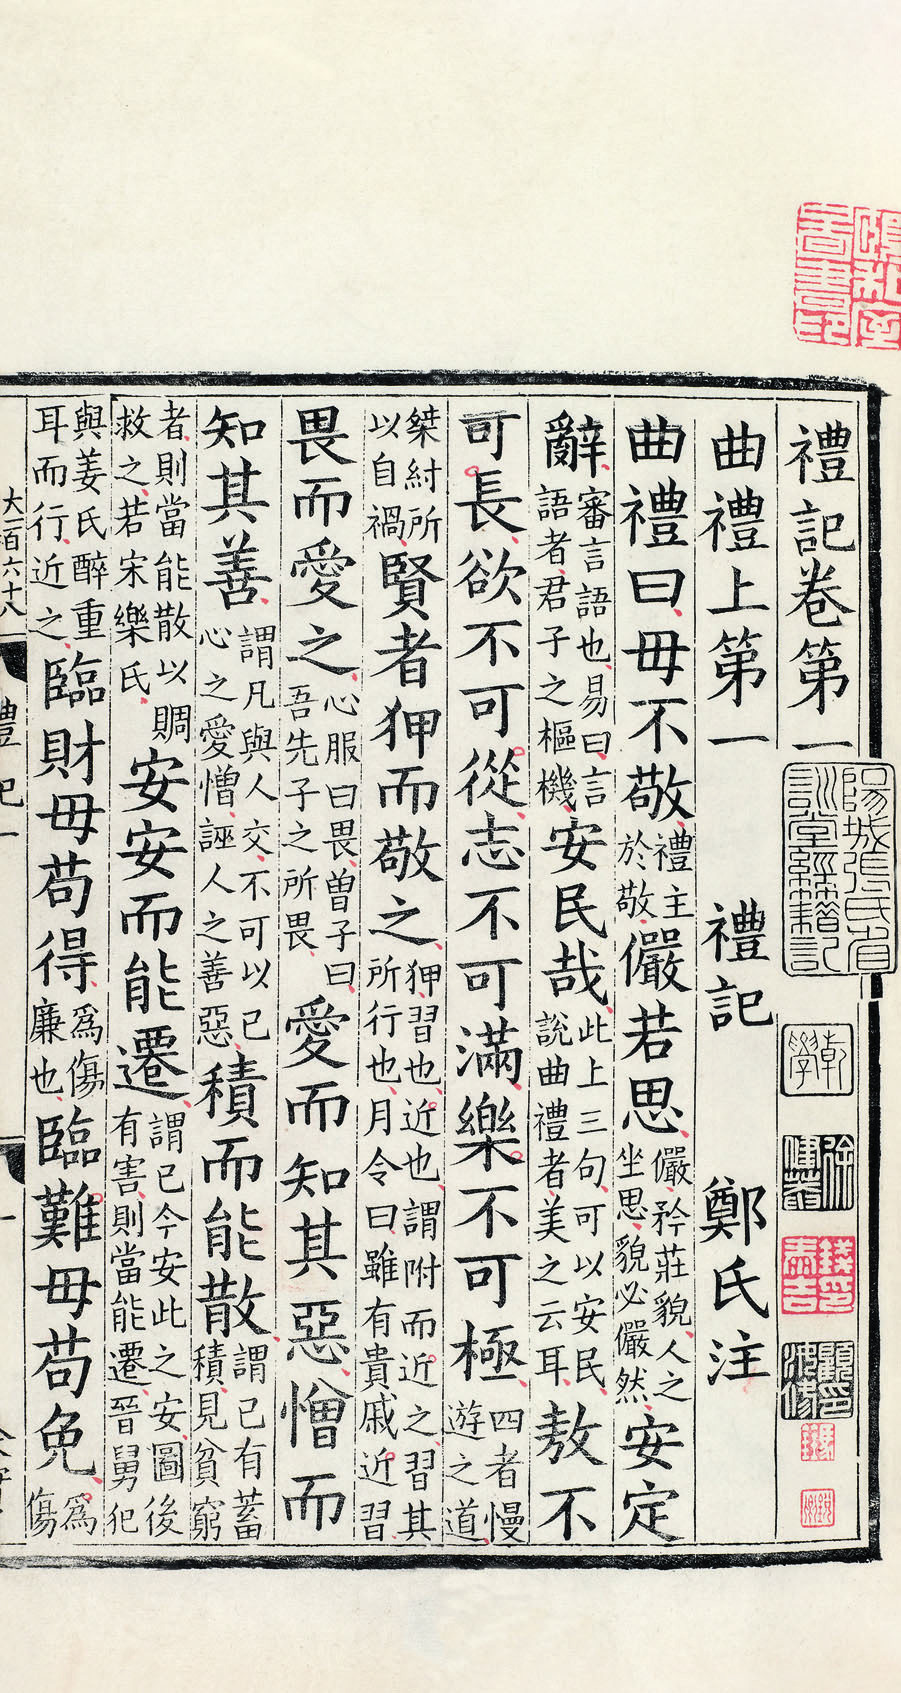 禮記卷第一
曲禮上第一 禮記 鄭氏注
曲禮曰毋不敬禮主於敬儼若思儼矜莊貌人之坐思貌必儼然安定
辭審言語也易曰言語者君子之樞機安民哉此上三句可以安民說曲禮者美之云耳敖不
可長欲不可從志不可滿樂不可極四者慢遊之道
桀紂所以自禍賢者狎而敬之狎習也近也謂附而近之習其所行也月令曰雖有貴戚近習
畏而愛之心服曰畏曾子曰吾先子之所畏愛而知其惡憎而
知其善謂凡與人交不可以己心之愛憎誣人之善惡積而能散謂己有蓄積見貧窮
者則當能散以賙救之若宋樂氏安安而能遷謂己今安此之安圖後有害則當能遷晉舅犯
與姜氏醉重耳而行近之臨財毋苟得為傷廉也臨難毋苟免為傷
大一百六十八
禮記一
陽城張氏省訓堂經籍記